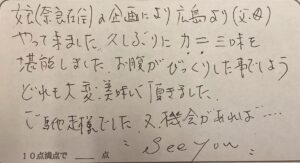 娘(奈良在住)の企画により広島より(父・母)
やって来ました。久しぶりに カニ三昧を
堪能しました。お腹がびっくりした事でしょう
どれも大変美味しく頂きました。
ご馳走様でした。又、機会があれば…
〃See you〃
10点満点で 点